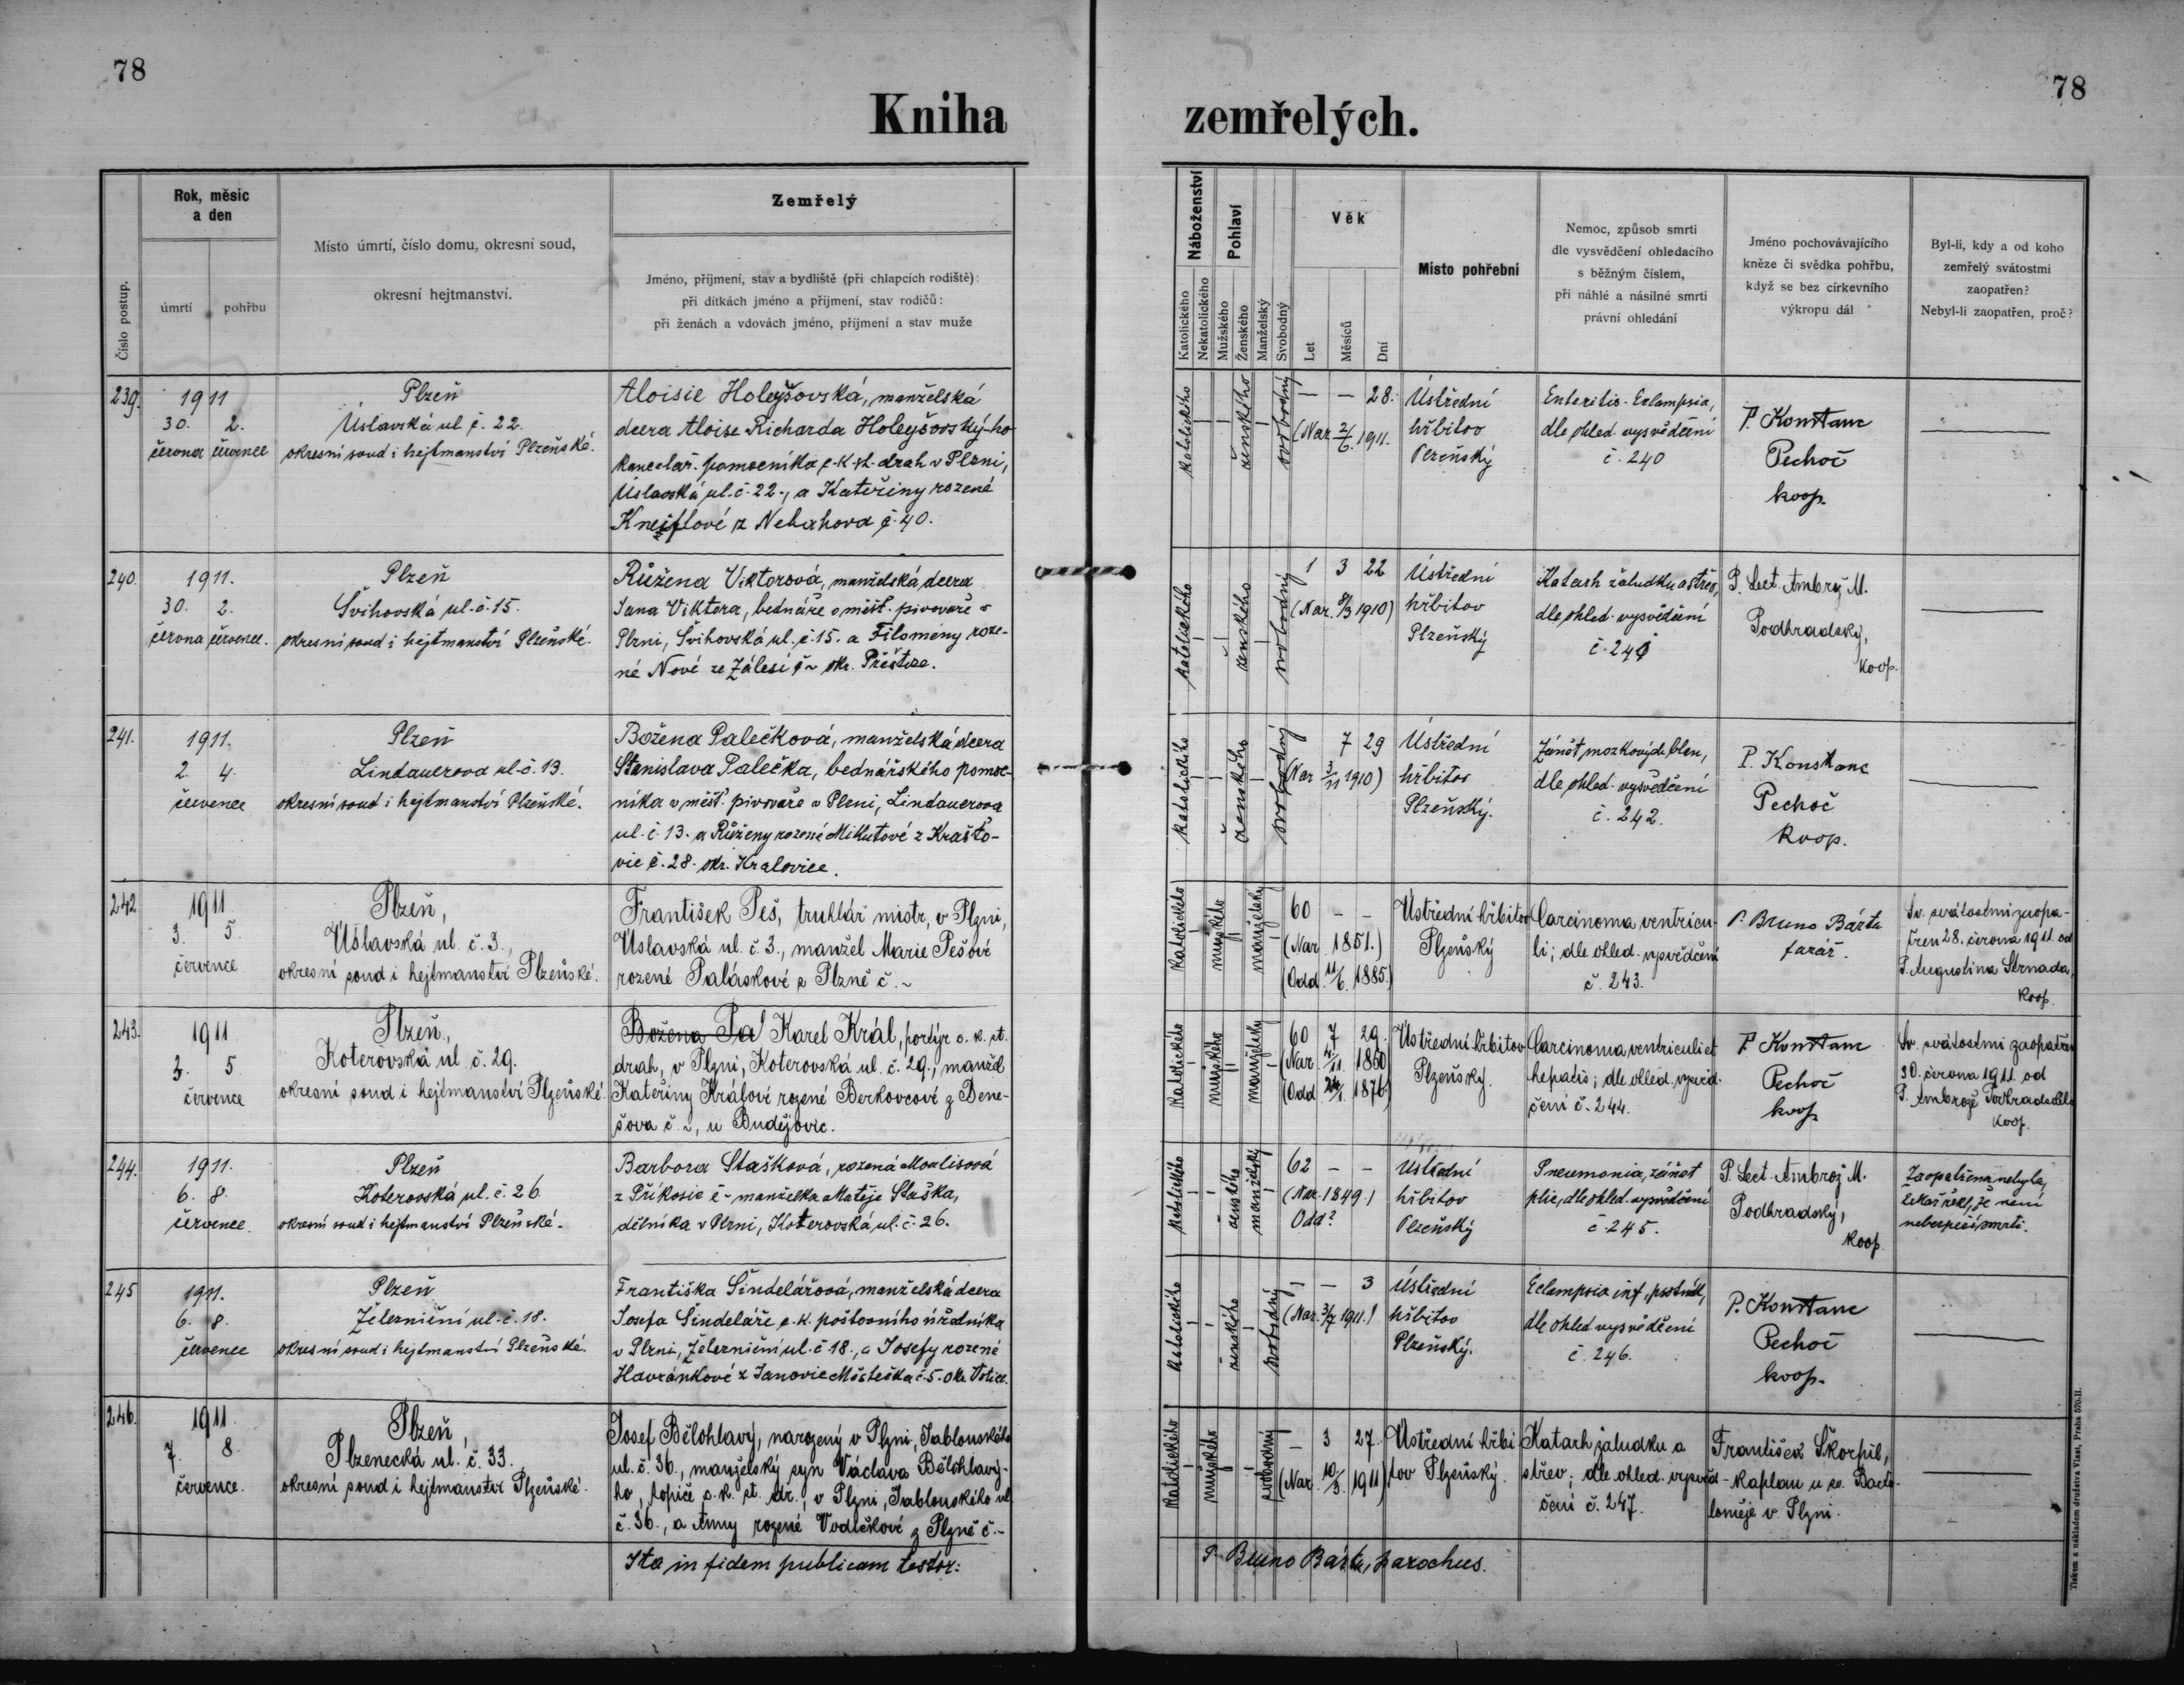 78
78
Kniha zemřelých.
Číslo postup.
Rok, měsíc
a den
úmrtí
pohřbu
Místo úmrtí, číslo domu, okresní soud,
okresní hejtmanství.
Zemřelý
Jméno, příjmení, stav a bydliště (při chlapcích rodiště):
při dítkách jméno a příjmení, stav rodičů:
při ženách a vdovách jméno, příjmení a stav muže
Náboženství
Katolického
Nekatolického
Pohlaví
Mužského
Ženského
Manželský
Svobodný
Věk
Let
Měsíců
Dní
Místo pohřební
Nemoc, způsob smrti
dle vysvědčení ohledacího
s běžným číslem,
při náhlé a násilné smrti
právní ohledání
Jméno pochovávajícího
kněze či svědka pohřbu,
když se bez církevního
výkropu dál
Byl-li, kdy a od koho
zemřelý svátostmi
zaopatřen?
Nebyl-li zaopatřen, proč?
239.
1911
30. 2.
června července
Plzeň
Úslavská ul č. 22.
okresní soud i hejtmanství Plzeňské.
Aloisie Holeyšovská, manželská
dcera Aloise Richarda Holeyšovský-ho
kancelář. pomocníka c. k. st. drah v Plzni,
Úslavská ul. č. 22., a Kateřiny rozené
Knejflové z Nebahova č. 40.
katolického
ženského
svobodný
— — 28.
(Nar. 2/6. 1911.
Ústřední
hřbitov
Plzeňský
Enteritis. Eclampsia,
dle ohled. vysvědčení
č. 240
P. Konstanc
Pechoč
koop.
240.
1911.
30. 2.
června července.
Plzeň
Švihovská ul. č. 15.
okresní soud i hejtmanství Plzeňské.
Růžena Viktorová, manželská dcera
Jana Viktora, bednáře v měšť. pivovaře v
Plzni, Švihovská ul. č. 15. a Filomeny roze-
né Nové ze Zálesí č ~ okr. Přeštice.
katolického
ženského
svobodný
1 3 22
(Nar. 8/3 1910)
Ústřední
hřbitov
Plzeňský
Katarh žaludku a střev,
dle ohled. vysvědčení
č. 241
P. Lect. Ambrož M.
Podhradský,
koop.
241.
1911.
2. 4.
července
Plzeň
Lindauerova ul. č. 13.
okresní soud i hejtmanství Plzeňské.
Božena Palečková, manželská dcera
Stanislava Palečka, bednářského pomoc-
níka v měšť. pivovaře v Plzni, Lindauerova
ul. č. 13. a Růženy rozené Mikutové z Krašťo-
vic č. 28. okr. Kralovice.
katolického
ženského
svobodný
7 29
(Nar 3/11 1910)
Ústřední
hřbitov
Plzeňský.
Zánět mozkových blan,
dle ohled. vysvědčení
č. 242.
P. Konstanc
Pechoč
koop.
242
1911
3. 5.
července
Plzeň,
Úslavská ul. č. 3.,
okresní soud i hejtmanství Plzeňské.
František Peš, truhlář. mistr, v Plzni,
Úslavská ul. č. 3., manžel Marie Pešové
rozené Paláskové z Plzně č. ~
katolického
mužského
manželský
60 - -
(Nar. 1851.)
(Odd. 11/6. 1885.)
Ústřední hřbitov
Plzeňský
Carcinoma ventricu-
li; dle ohled. vysvědčení
č. 243.
P. Bruno Bárta
farář.
Sv. svátostmi zaopa-
třen 28. června 1911 od
P. Augustina Strnada,
koop.
243.
1911
3. 5.
července
Plzeň,
Koterovská ul č. 29.
okresní soud i hejtmanství Plzeňské.
Božena Pa Karel Král, portýr c. k. st.
drah, v Plzni, Koterovská ul. č. 29., manžel
Kateřiny Králové rozené Berkovcové z Bene-
šova č. ~, u Budějovic.
katolického
mužského
manželský
60 7 29.
(Nar. 4/11. 1850
(Odd. 24/1. 1876)
Ústřední hřbitov
Plzeňský.
Carcinoma ventriculi et
hepatis; dle ohled. vysvěd-
čení č. 244.
P. Konstanc
Pechoč
koop
Sv. svátostmi zaopatřen
30. června 1911 od
P. Ambrože Podhradského
koop.
244.
1911.
6. 8.
července.
Plzeň
Koterovská ul. č. 26
okresní soud i hejtmanství Plzeňské.
Barbora Stašková, rozená Moulisová
z Příkosic č - manželka Matěje Staška,
dělníka v Plzni, Koterovská ul. č. 26.
katolického
ženského
manželský
62 - -
(Nar. 1849.)
Odd?
Ústřední
hřbitov
Plzeňský
Pneumonia, zánět
plic, dle ohled. vysvědčení
č. 245.
P. Lect. Ambrož M.
Podhradský,
koop.
Zaopatřena nebyla,
lékař řekl, že není
nebezpečí smrti.
245
1911.
6. 8.
července
Plzeň
Železniční ul. č. 18.
okresní soud i hejtmanství Plzeňské.
Františka Šindelářová, manželská dcera
Josefa Šindeláře c. k. poštovního úředníka
v Plzni, Železniční ul. č 18., a Josefy rozené
Havránkové z Janovic Městečka č. 5. okr. Votice.
katolického
ženského
svobodný
— — 3
(Nar. 3/7 1911.)
Ústřední
hřbitov
Plzeňský.
Eclampsia inf.,
dle ohled vysvědčení
č. 246.
P. Konstanc
Pechoč
koop.
246.
1911.
7. 8.
července.
Plzeň,
Plzenecká ul. č. 33.
okresní soud i hejtmanství Plzeňské.
Josef Bělohlavý, narozený v Plzni, Jablonského
ul. č. 36., manželský syn Václava Bělohlavý-
ho, topiče c. k. st. dr., v Plzni, Jablonského ul
č. 36., a Anny rozené Vodičkové z Plzně č. -
katolického
mužského
svobodný
- 3 27.
(Nar. 10/3. 1911)
Ústřední hřbi
tov Plzeňský.
Katarh žaludku a
střev; dle ohled. vysvěd-
čení č. 247.
František Škorpil,
kaplan u sv. Barto-
loměje v Plzni.
Ita in fidem publicam testor:
P. Bruno Bárta, parochus.
Tiskem a nákladem družstva Vlast, Praha 570-II.